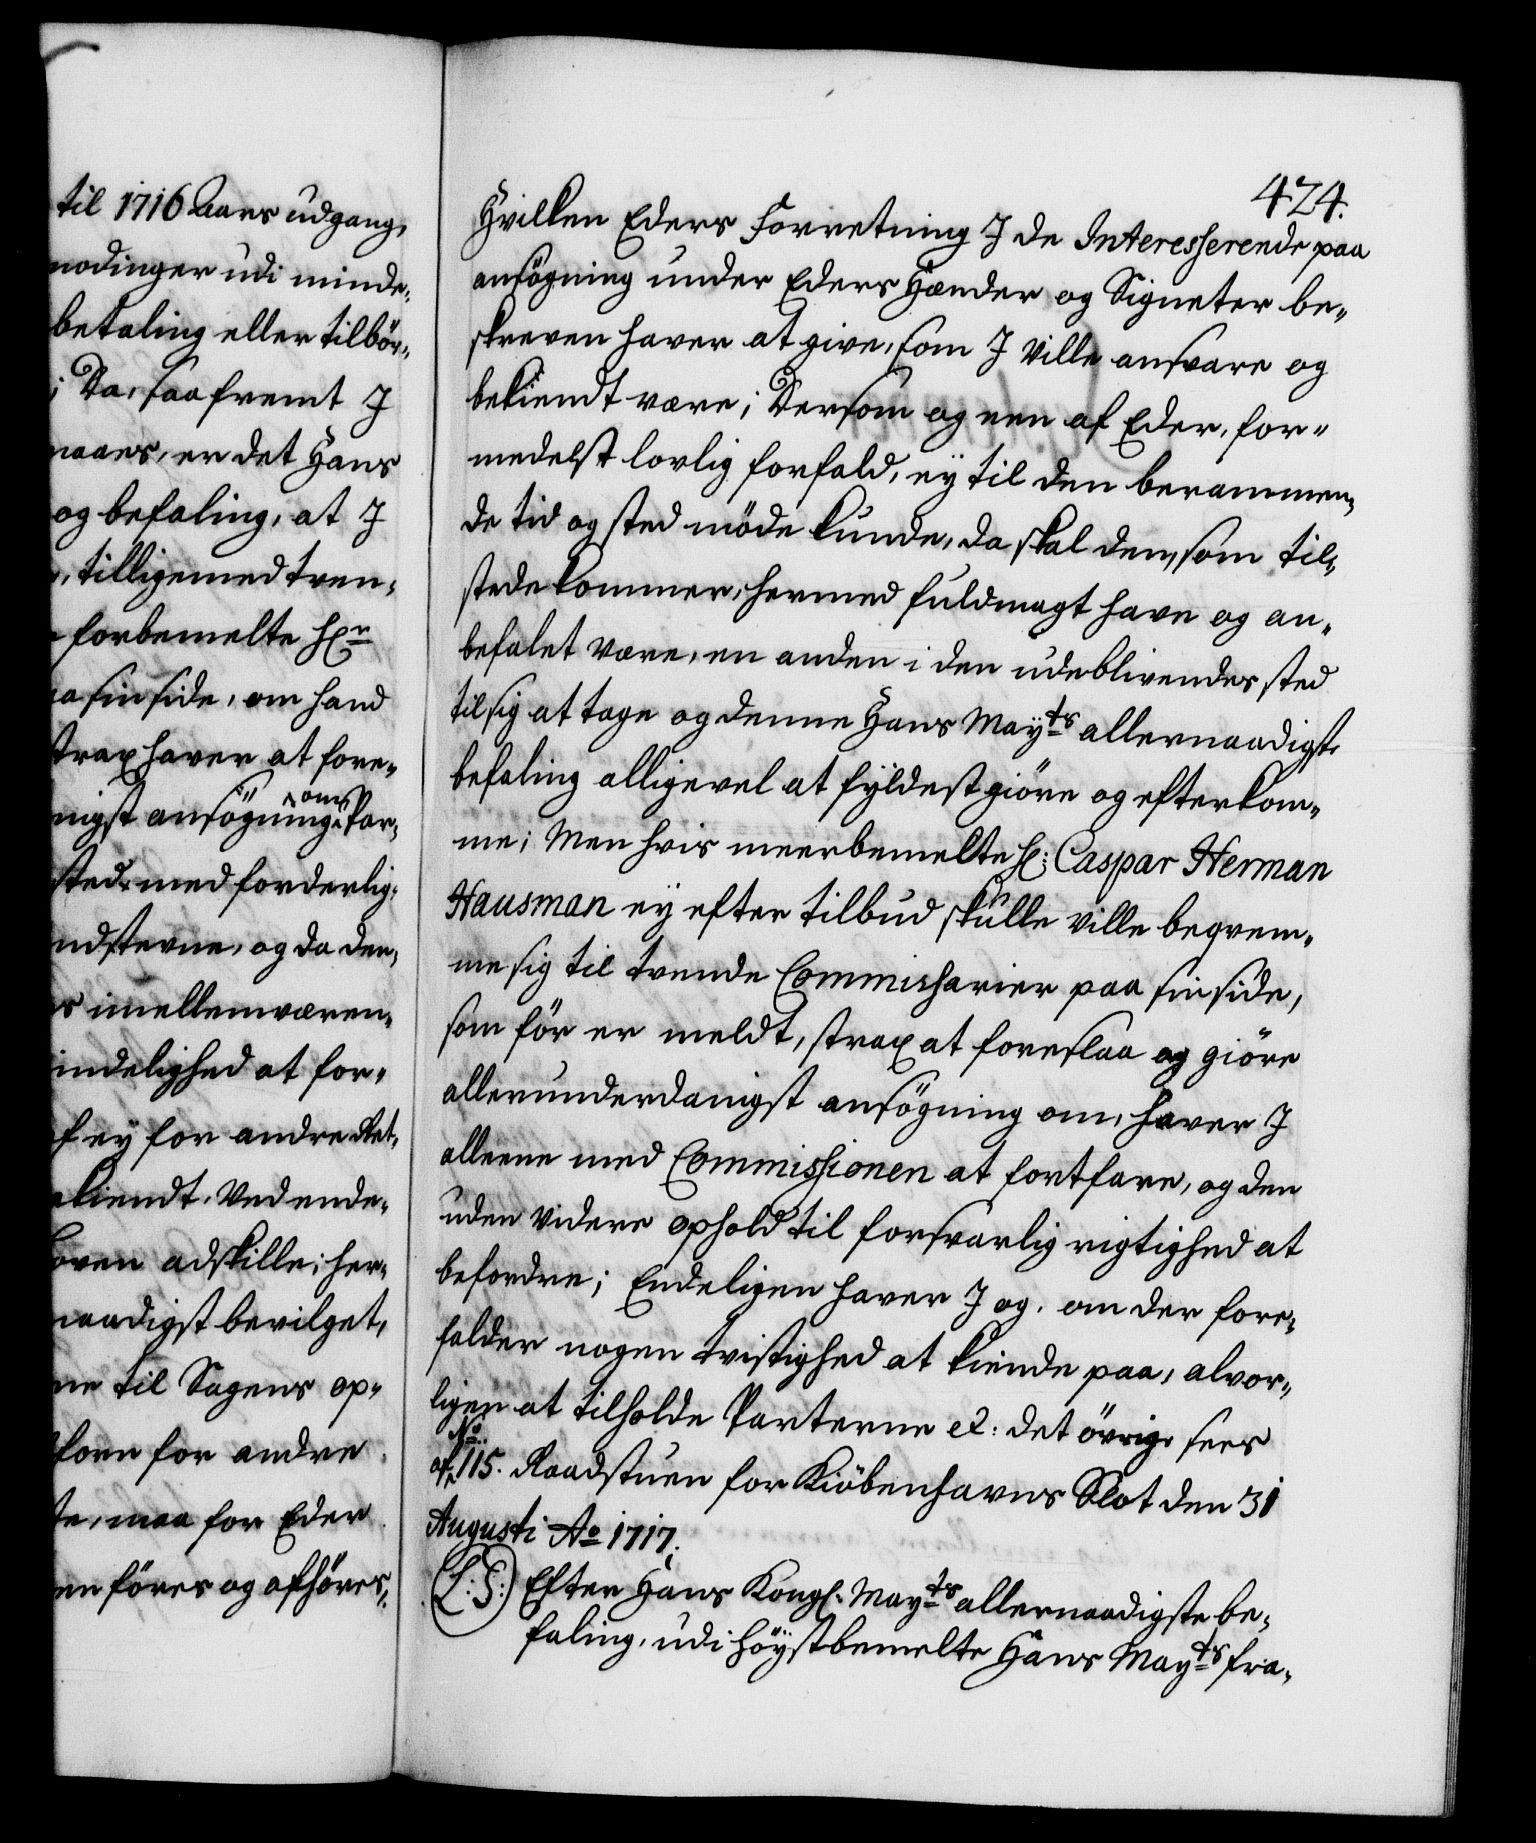 til 1716 Aars udgang,
nodinger udi minde,
betaling eller tilbör,,
; Da, saafremt J
naaes, er det Hans
og befaling, at J
, tilligemed tven,
forbemelte Hr
a sin side, om hand
strax haver at fore,,
nigst ansögning om Par,
sted, med forderlig,
ndstevne, og da den,
s imellemværen,
indelighed at for,,
f ey for andre Ret,
kiendt, Ved ende,
oven adskille; her,,
naadigst bevilget,
ne til Sagens op,,
korn for andre
te, maa for Eder
en föres og afhöres,
424.
Hvilken Eders Forretning J de Interesserende paa
ansögning under Eders Hænder og Signeter be,,
skreven haver at give, som J Ville ansvare og
bekiendt være; Dersom og een af Eder, for,,
medelst lovlig forfald, ey til den berammen,
de tid og sted möde kunde, da skal dem, som til,
stede kommer, hermed fuldmagt have og an,,
befalet Være, en anden i den udeblivendes sted
til sig at tage og denne Hans Mayts allernaadigste
befaling alligevel at fyldestgiöre og efterkom,,
me; Men hvis meerbemelte H: Caspar Herman
Hausman ey efter tilbud skulle ville beqvem,,
me sig til tvende Commissarier paa sin side,
som för er meldt, strax at foreslaa og giöre
allerunderdanigst ansögning om, haver J
alleene med Commissionen at fortfare, og den
uden videre ophold til forsvarlig rigtighed at
befordre; Endeligen haver J og, om der fore,,
falder nogen tvistighed at kiende paa, alvor,,
ligen at tilholde Parterne etc: det övrige sees
af No. 115. Raadstuen for Kiöbenhavns Slot den 31
Augusti Ao 1717.
(L: S:) Efter Hans Kongl. Mayts allernaadigste be,
faling, udi höystbemelte Hans Mayts fra,